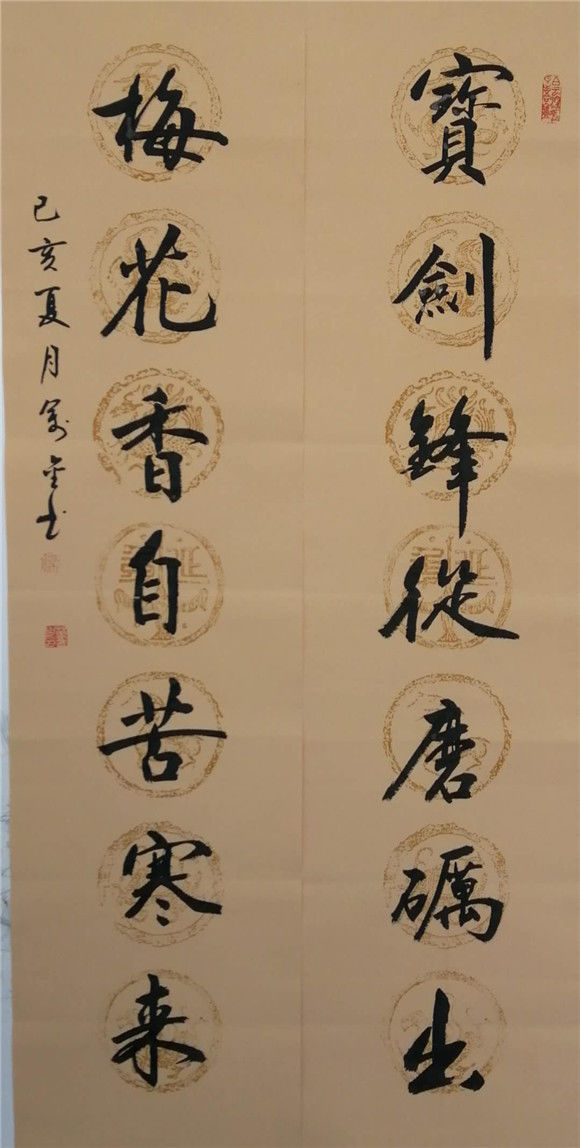 寶劍鋒從磨礪出
梅花香自苦寒来
己亥夏月萬金书